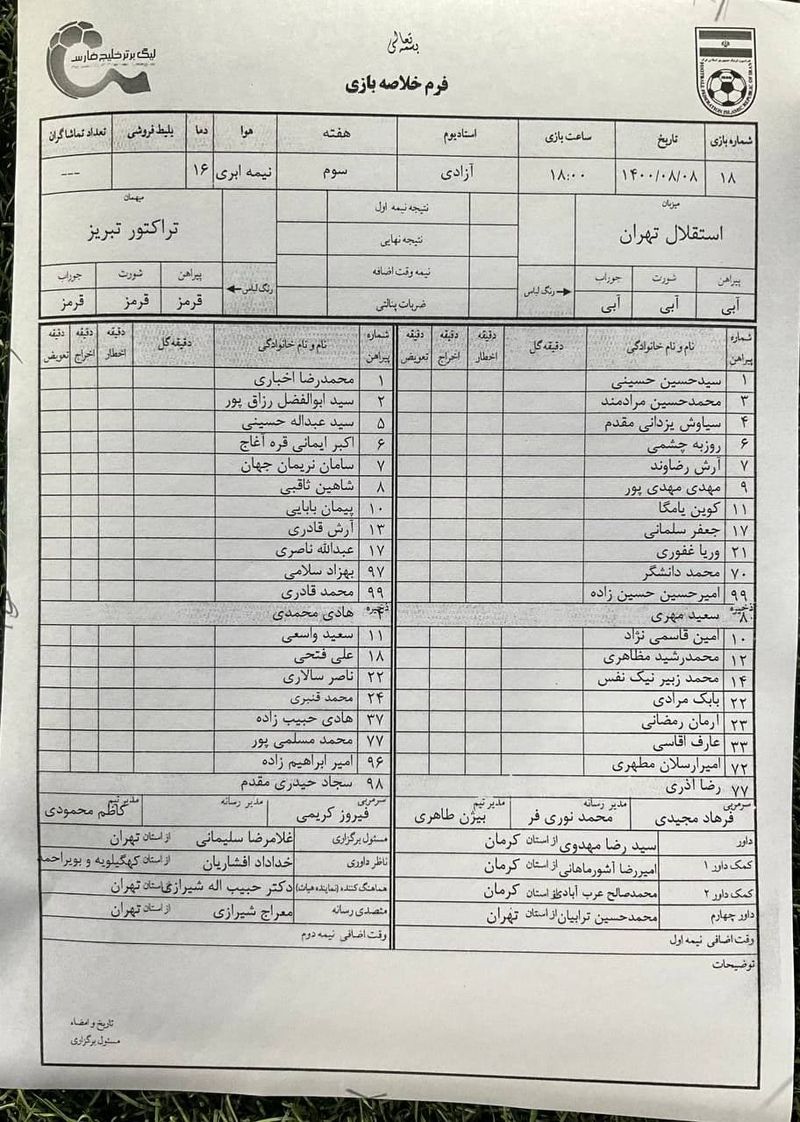 بسمه تعالی
لیگ برتر خلیج فارس
FOOTBALL FEDERATION ISLAMIC REPUBLIC OF IRAN
فرم خلاصه بازی
شماره بازی تاریخ ساعت بازی استادیوم هفته هوا دما بلیط فروشی تعداد تماشاگران
۱۸ ۱۴۰۰/۰۸/۰۸ ۱۸:۰۰ آزادی سوم نیمه ابری ۱۶ ---
میزبان نتیجه نیمه اول میهمان
استقلال تهران نتیجه نهایی تراکتور تبریز
پیراهن شورت جوراب رنگ لباس نیمه وقت اضافه رنگ لباس پیراهن شورت جوراب
آبی آبی آبی ضربات پنالتی قرمز قرمز قرمز
شماره پیراهن نام و نام خانوادگی دقیقه گل دقیقه اخطار دقیقه اخراج دقیقه تعویض شماره پیراهن نام و نام خانوادگی دقیقه گل دقیقه اخطار دقیقه اخراج دقیقه تعویض
۱ سیدحسین حسینی ۱ محمدرضا اخباری
۳ محمدحسین مرادمند ۲ سید ابوالفضل رزاق پور
۴ سیاوش یزدانی مقدم ۵ سید عبداله حسینی
۶ روزبه چشمی ۶ اکبر ایمانی قره آغاج
۷ آرش رضاوند ۷ سامان نریمان جهان
۹ مهدی مهدی پور ۸ شاهین ثاقبی
۱۱ کوین یامگا ۱۰ پیمان بابایی
۱۷ جعفر سلمانی ۱۳ آرش قادری
۲۱ وریا غفوری ۱۷ عبدالله ناصری
۷۰ محمد دانشگر ۹۷ بهزاد سلامی
۹۹ امیرحسین حسین زاده ۹۹ محمد قادری
ذخیره ۸ سعید مهری ذخیره ۴ هادی محمدی
۱۰ آمین قاسمی نژاد ۱۱ سعید واسعی
۱۲ محمدرشید مظاهری ۱۸ علی فتحی
۱۴ محمد زبیر نیک نفس ۲۲ ناصر سالاری
۲۲ بابک مرادی ۲۴ محمد قنبری
۲۳ آرمان رمضانی ۳۷ هادی حبیب زاده
۳۳ عارف آقاسی ۷۷ محمد مسلمی پور
۷۲ امیرارسلان مطهری ۹۶ امیر ابراهیم زاده
۷۷ رضا آذری ۹۸ سجاد حیدری مقدم
سرمربی فرهاد مجیدی مدیر رسانه محمد نوری فر مدیر تیم بیژن طاهری سرمربی فیروز کریمی مدیر رسانه مدیر تیم کاظم محمودی
داور سید رضا مهدوی از استان کرمان مسئول برگزاری غلامرضا سلیمانی از استان تهران
کمک داور ۱ امیررضا آشورماهانی از استان کرمان ناظر داوری خداداد افشاریان از استان کهگیلویه و بویراحمد
کمک داور ۲ محمدصالح عرب آبادی از استان کرمان هماهنگ کننده (نماینده هیات) دکتر حبیب اله شیرازی از استان تهران
داور چهارم محمدحسین ترابیان از استان تهران متصدی رسانه معراج شیرازی از استان تهران
وقت اضافی نیمه اول وقت اضافی نیمه دوم
توضیحات
تاریخ و امضاء
مسئول برگزاری